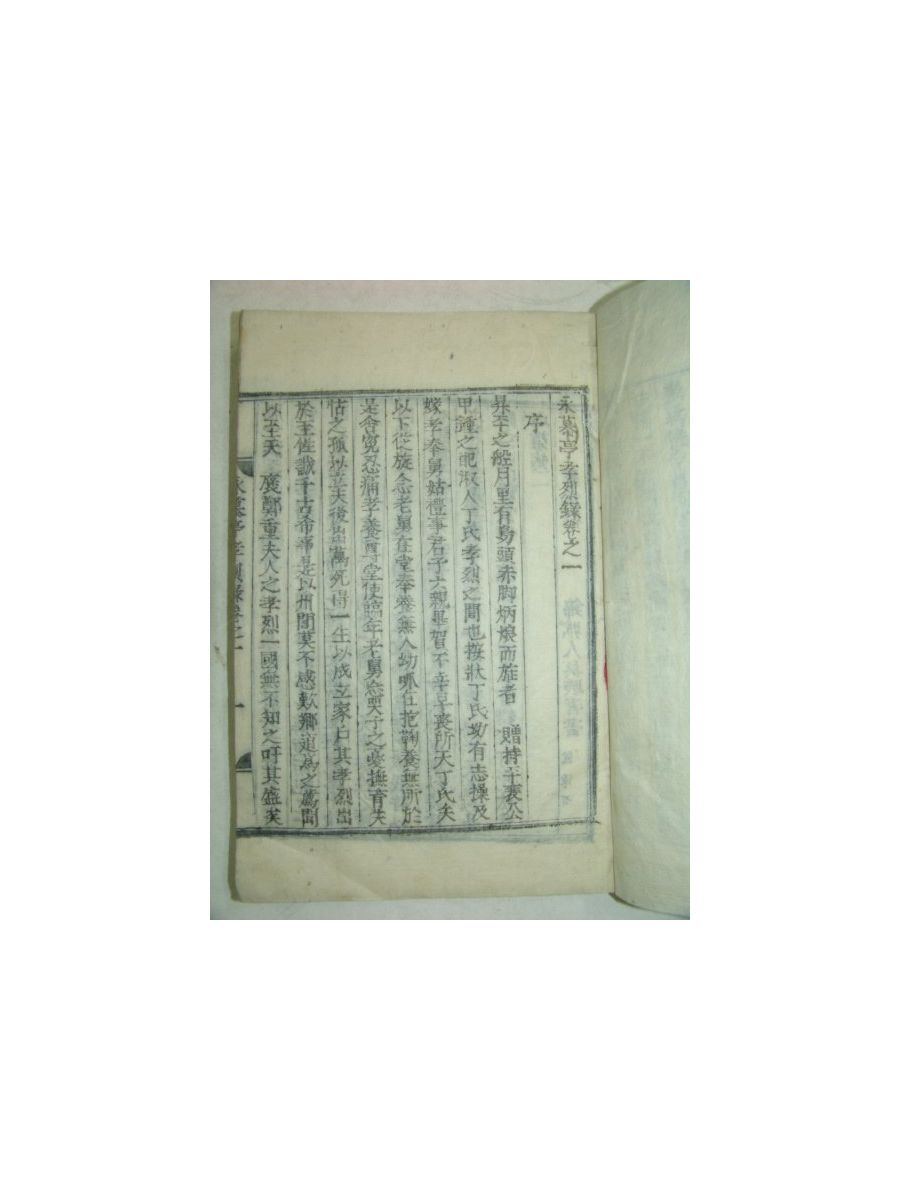 永慕亭孝烈錄卷之一
序
之船月里有烏頭赤脚炳煥而旌者 贈持平裵公
甲之配淑人丁氏孝烈之閭也按狀丁氏幼有志操及
嫁孝奉舅姑禮事君子六親畢賀不幸早喪所天丁氏矢
以下從旋念老舅在堂奉養無人幼孤在抱鞠養無所於
是含寃忍痛孝養尊堂使臨年老舅無哭子之憂撫育失
怙之孤以立夫後出萬死得一生以成立家戶其孝烈出
於至性誠千古希事是以州閭莫不感歎鄕道爲之薦聞
以至天 褒鄭重夫人之孝烈一國無不知之吁其盛矣
永慕亭孝烈錄卷之一 一